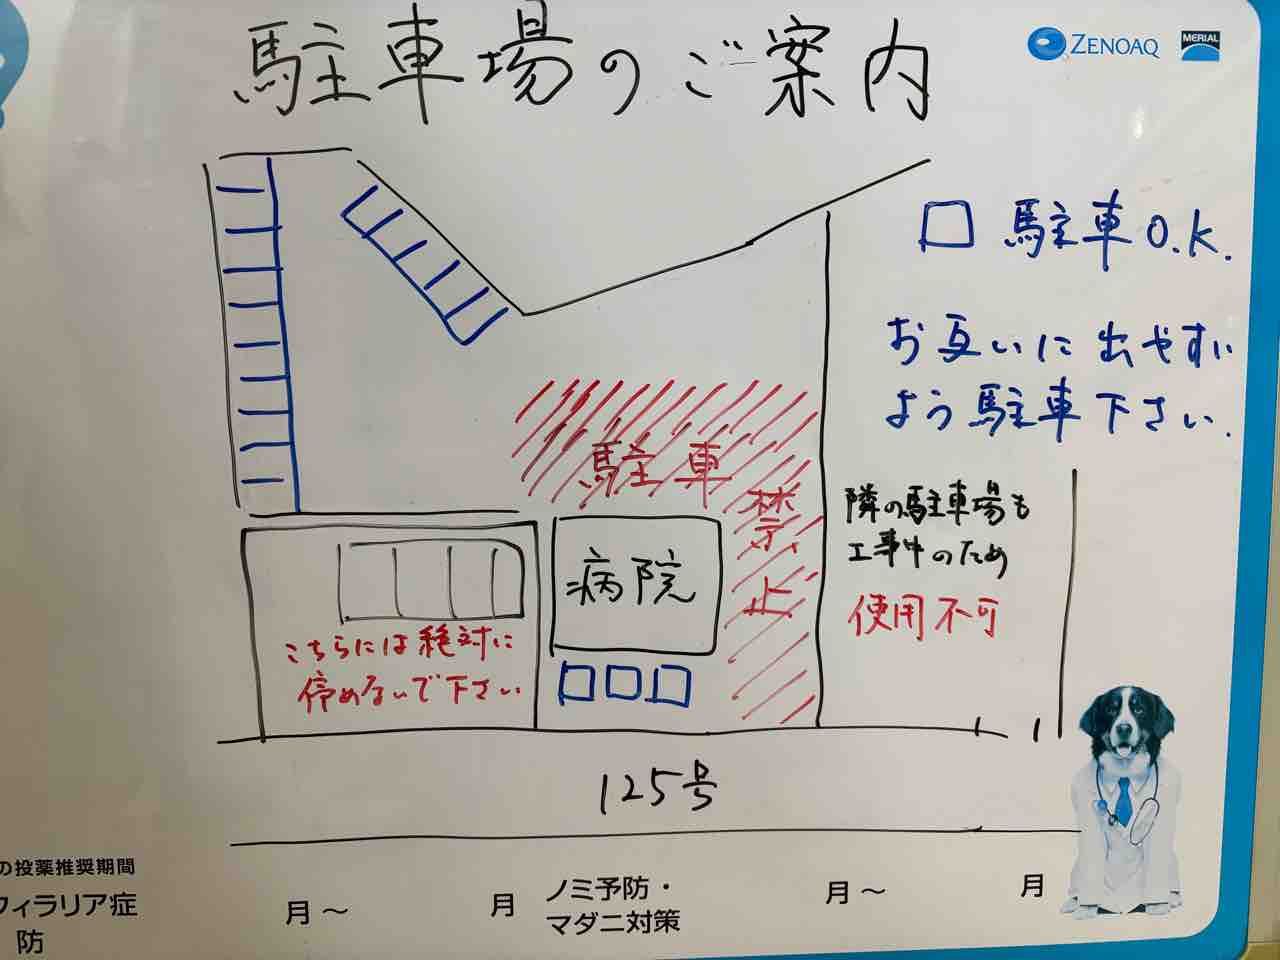 駐車場のご案内
ZENOAQ
MERIAL
駐車O.K.
お互いに出やすい
よう駐車下さい.
駐車
禁
止
隣の駐車場も
工事中のため
使用不可
病院
こちらには絶対に
停めないで下さい
125号
の投薬推奨期間
フィラリア症
防
月～
月
ノミ予防・
マダニ対策
月～
月